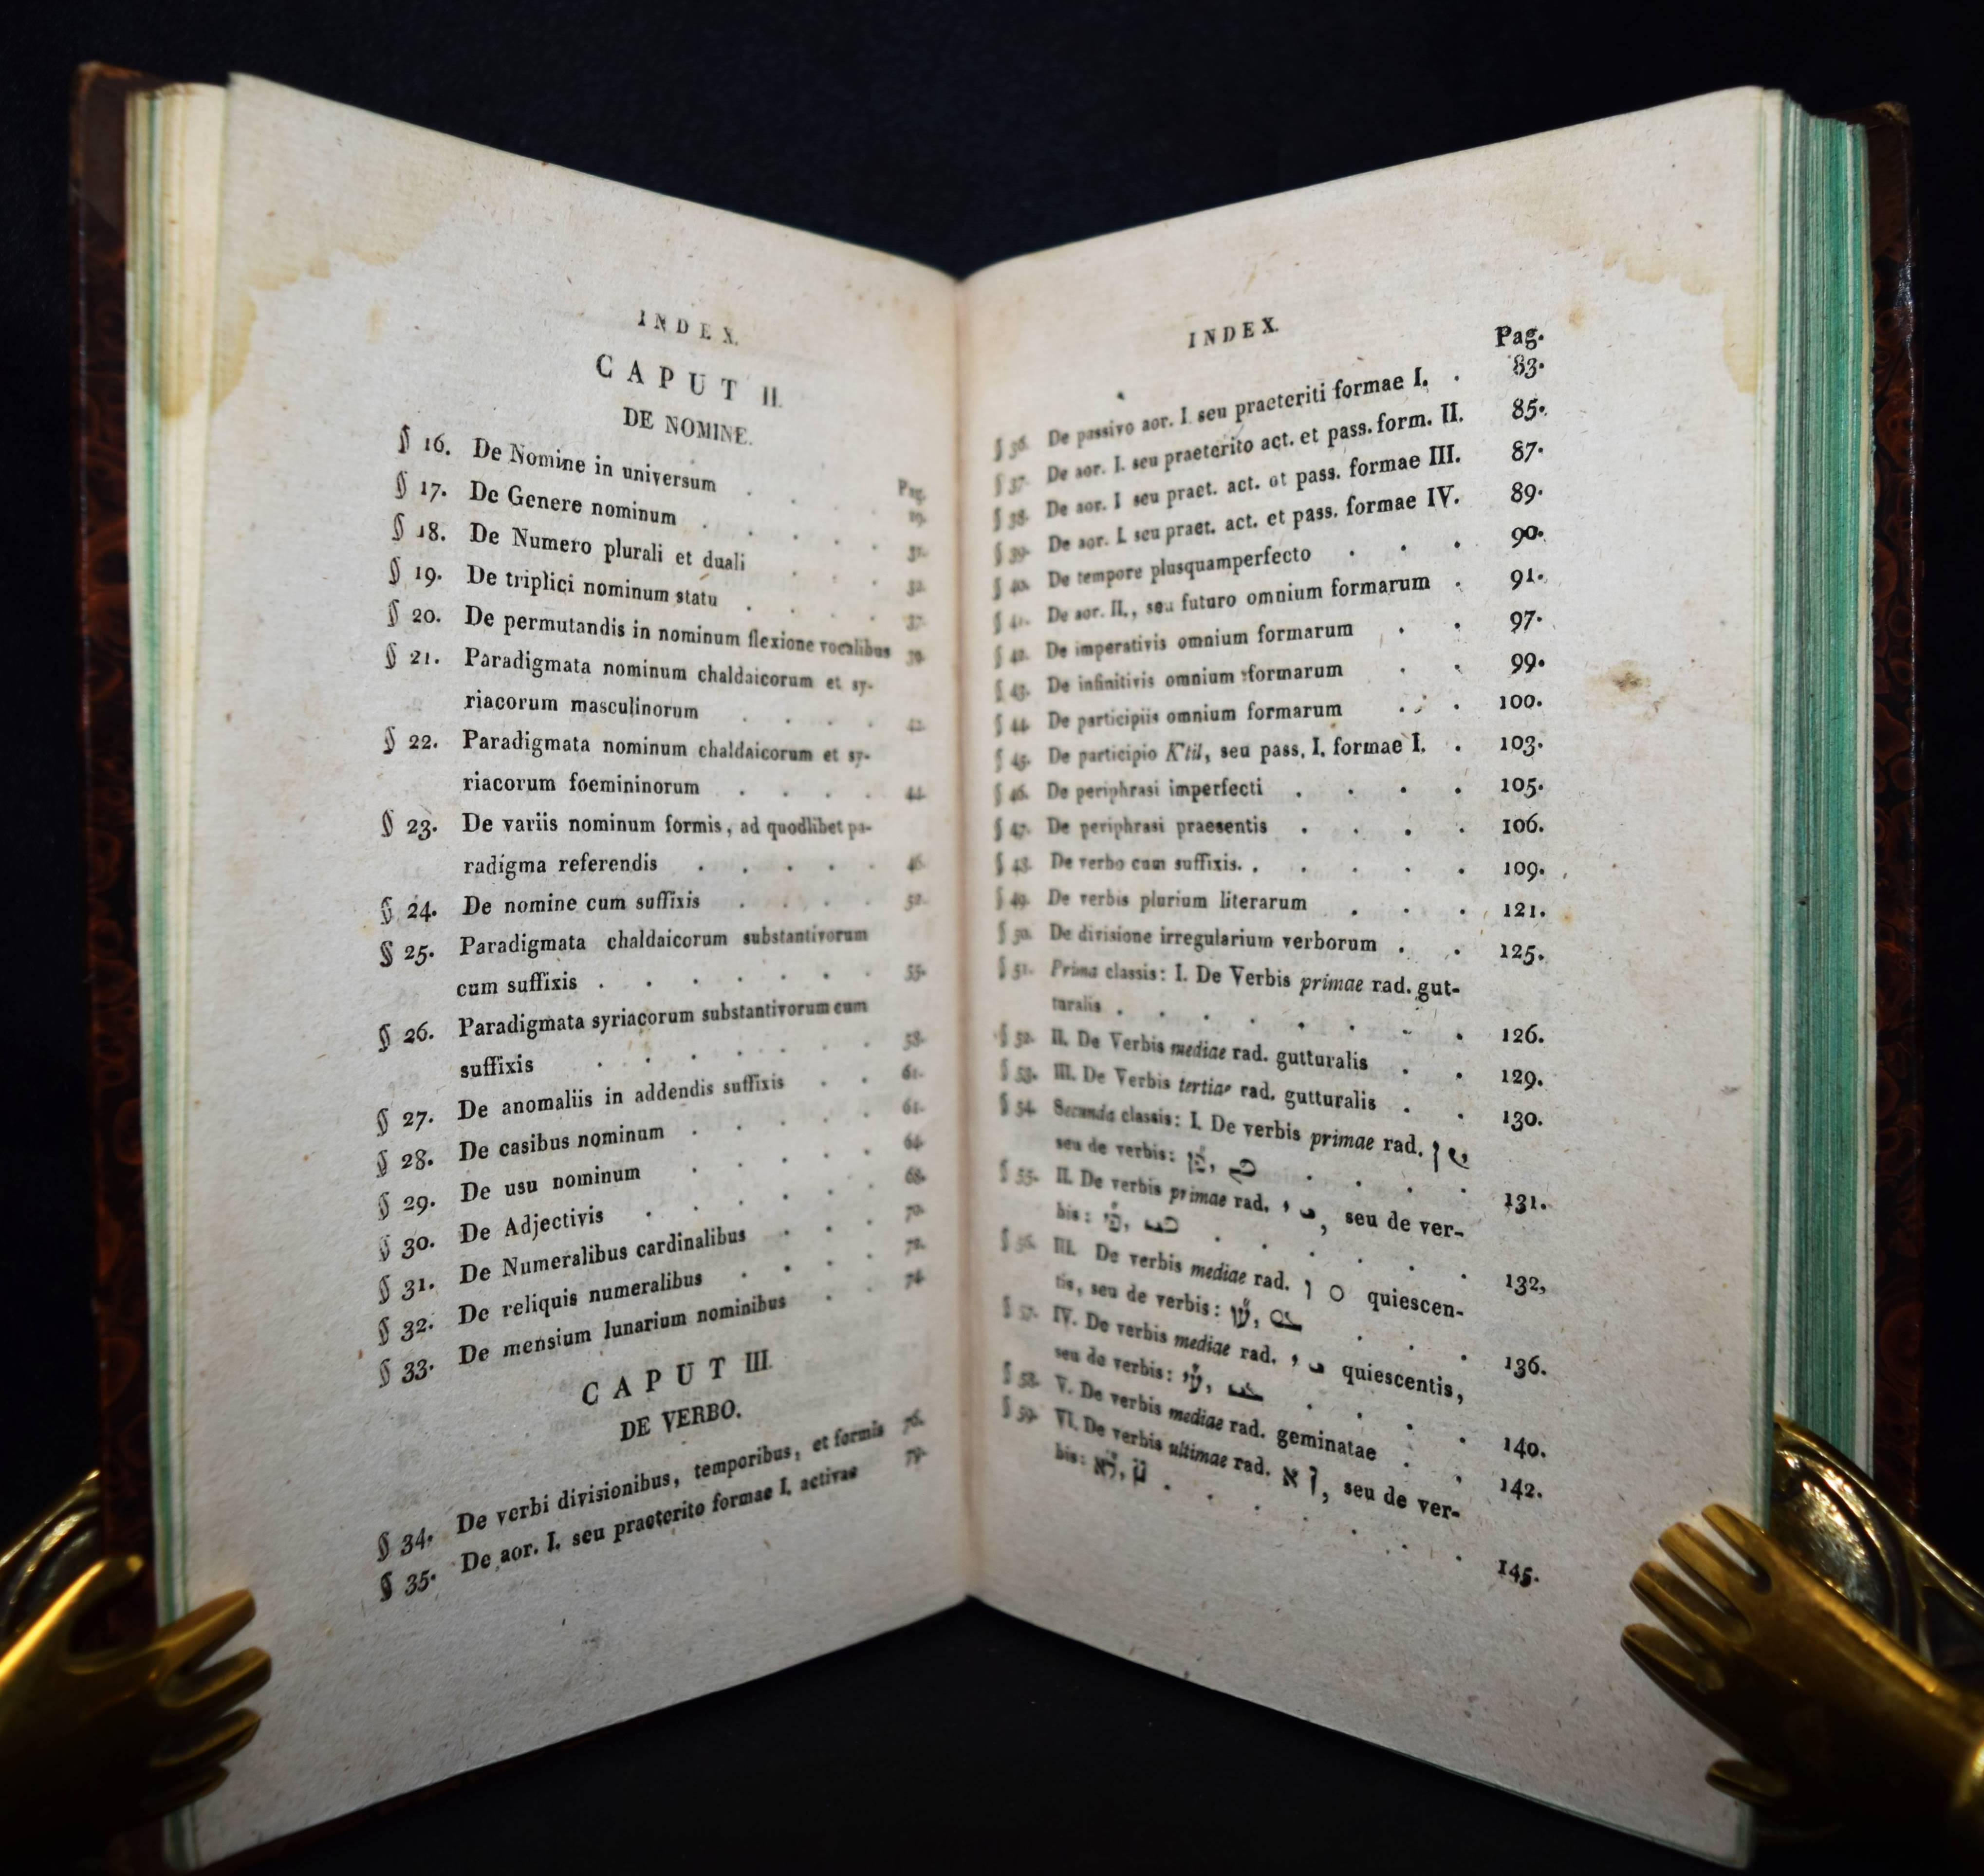 INDEX.
CAPUT II.
DE NOMINE.
Pag.
§ 16. De Nomine in universum . . 29.
§ 17. De Genere nominum . . . . . 31.
§ 18. De Numero plurali et duali . . . 32.
§ 19. De triplici nominum statu . . . . 37.
§ 20. De permutandis in nominum flexione vocalibus 39.
§ 21. Paradigmata nominum chaldaicorum et sy-
riacorum masculinorum . . . . 42.
§ 22. Paradigmata nominum chaldaicorum et sy-
riacorum foemininorum . . . . 44.
§ 23. De variis nominum formis, ad quodlibet pa-
radigma referendis . . . . . 46.
§ 24. De nomine cum suffixis . . . . 52.
§ 25. Paradigmata chaldaicorum substantivorum
cum suffixis . . . . . . . 55.
§ 26. Paradigmata syriacorum substantivorum cum
suffixis . . . . . . . 58.
§ 27. De anomaliis in addendis suffixis . . 61.
§ 28. De casibus nominum . . . . . 61.
§ 29. De usu nominum . . . . . 64.
§ 30. De Adjectivis . . . . . . 68.
§ 31. De Numeralibus cardinalibus . . . 70.
§ 32. De reliquis numeralibus . . . . 72.
§ 33. De mensium lunarium nominibus . . 74.
CAPUT III.
DE VERBO.
§ 34. De verbi divisionibus, temporibus, et formis 76.
§ 35. De aor. I. seu praeterito formae I. activae 79.
INDEX.
Pag.
§ 36. De passivo aor. I. seu praeteriti formae I. . 83.
§ 37. De aor. I. seu praeterito act. et pass. form. II. 85.
§ 38. De aor. I seu praet. act. et pass. formae III. 87.
§ 39. De aor. I. seu praet. act. et pass. formae IV. 89.
§ 40. De tempore plusquamperfecto . . . 90.
§ 41. De aor. II., seu futuro omnium formarum . 91.
§ 42. De imperativis omnium formarum . . 97.
§ 43. De infinitivis omnium formarum . . 99.
§ 44. De participiis omnium formarum . . 100.
§ 45. De participio K'til, seu pass. I. formae I. . 103.
§ 46. De periphrasi imperfecti . . . . 105.
§ 47. De periphrasi praesentis . . . . 106.
§ 48. De verbo cum suffixis. . . . . . 109.
§ 49. De verbis plurium literarum . . . 121.
§ 50. De divisione irregularium verborum . . 125.
§ 51. Prima classis: I. De Verbis primae rad. gut-
turalis . . . . . . . . 126.
§ 52. II. De Verbis mediae rad. gutturalis . . 129.
§ 53. III. De Verbis tertiae rad. gutturalis . . 130.
§ 54. Secunda classis: I. De verbis primae rad.
seu de verbis: . . . . 131.
§ 55. II. De verbis primae rad. י ܝ, seu de ver-
bis: . . . . . . 132,
§ 56. III. De verbis mediae rad. ו ܘ quiescen-
tis, seu de verbis: . . . 136.
§ 57. IV. De verbis mediae rad. י ܝ quiescentis,
seu de verbis: . . . . 140.
§ 58. V. De verbis mediae rad. geminatae . . 142.
§ 59. VI. De verbis ultimae rad. א ܐ, seu de ver-
bis: . . . . . . . 145.